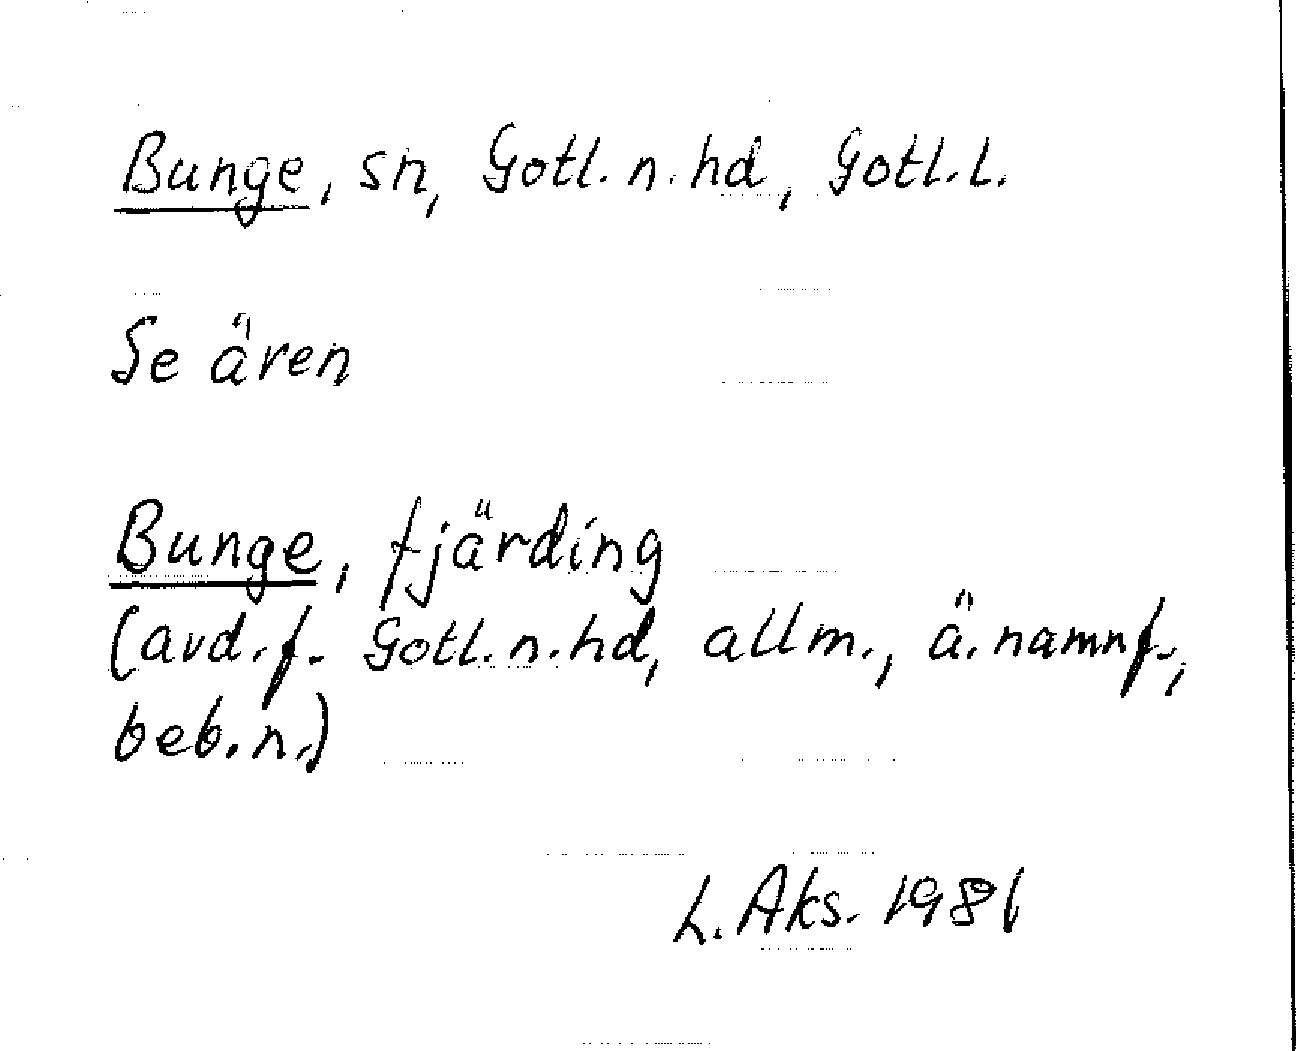 Bunge, sn, Gotl. n. hd, Gotl. l.
Se ären
Bunge, fjärding
(avd. f. Gotl. n. hd, allm., ä. namnf.,
beb.n.)
L. Aks. 1981